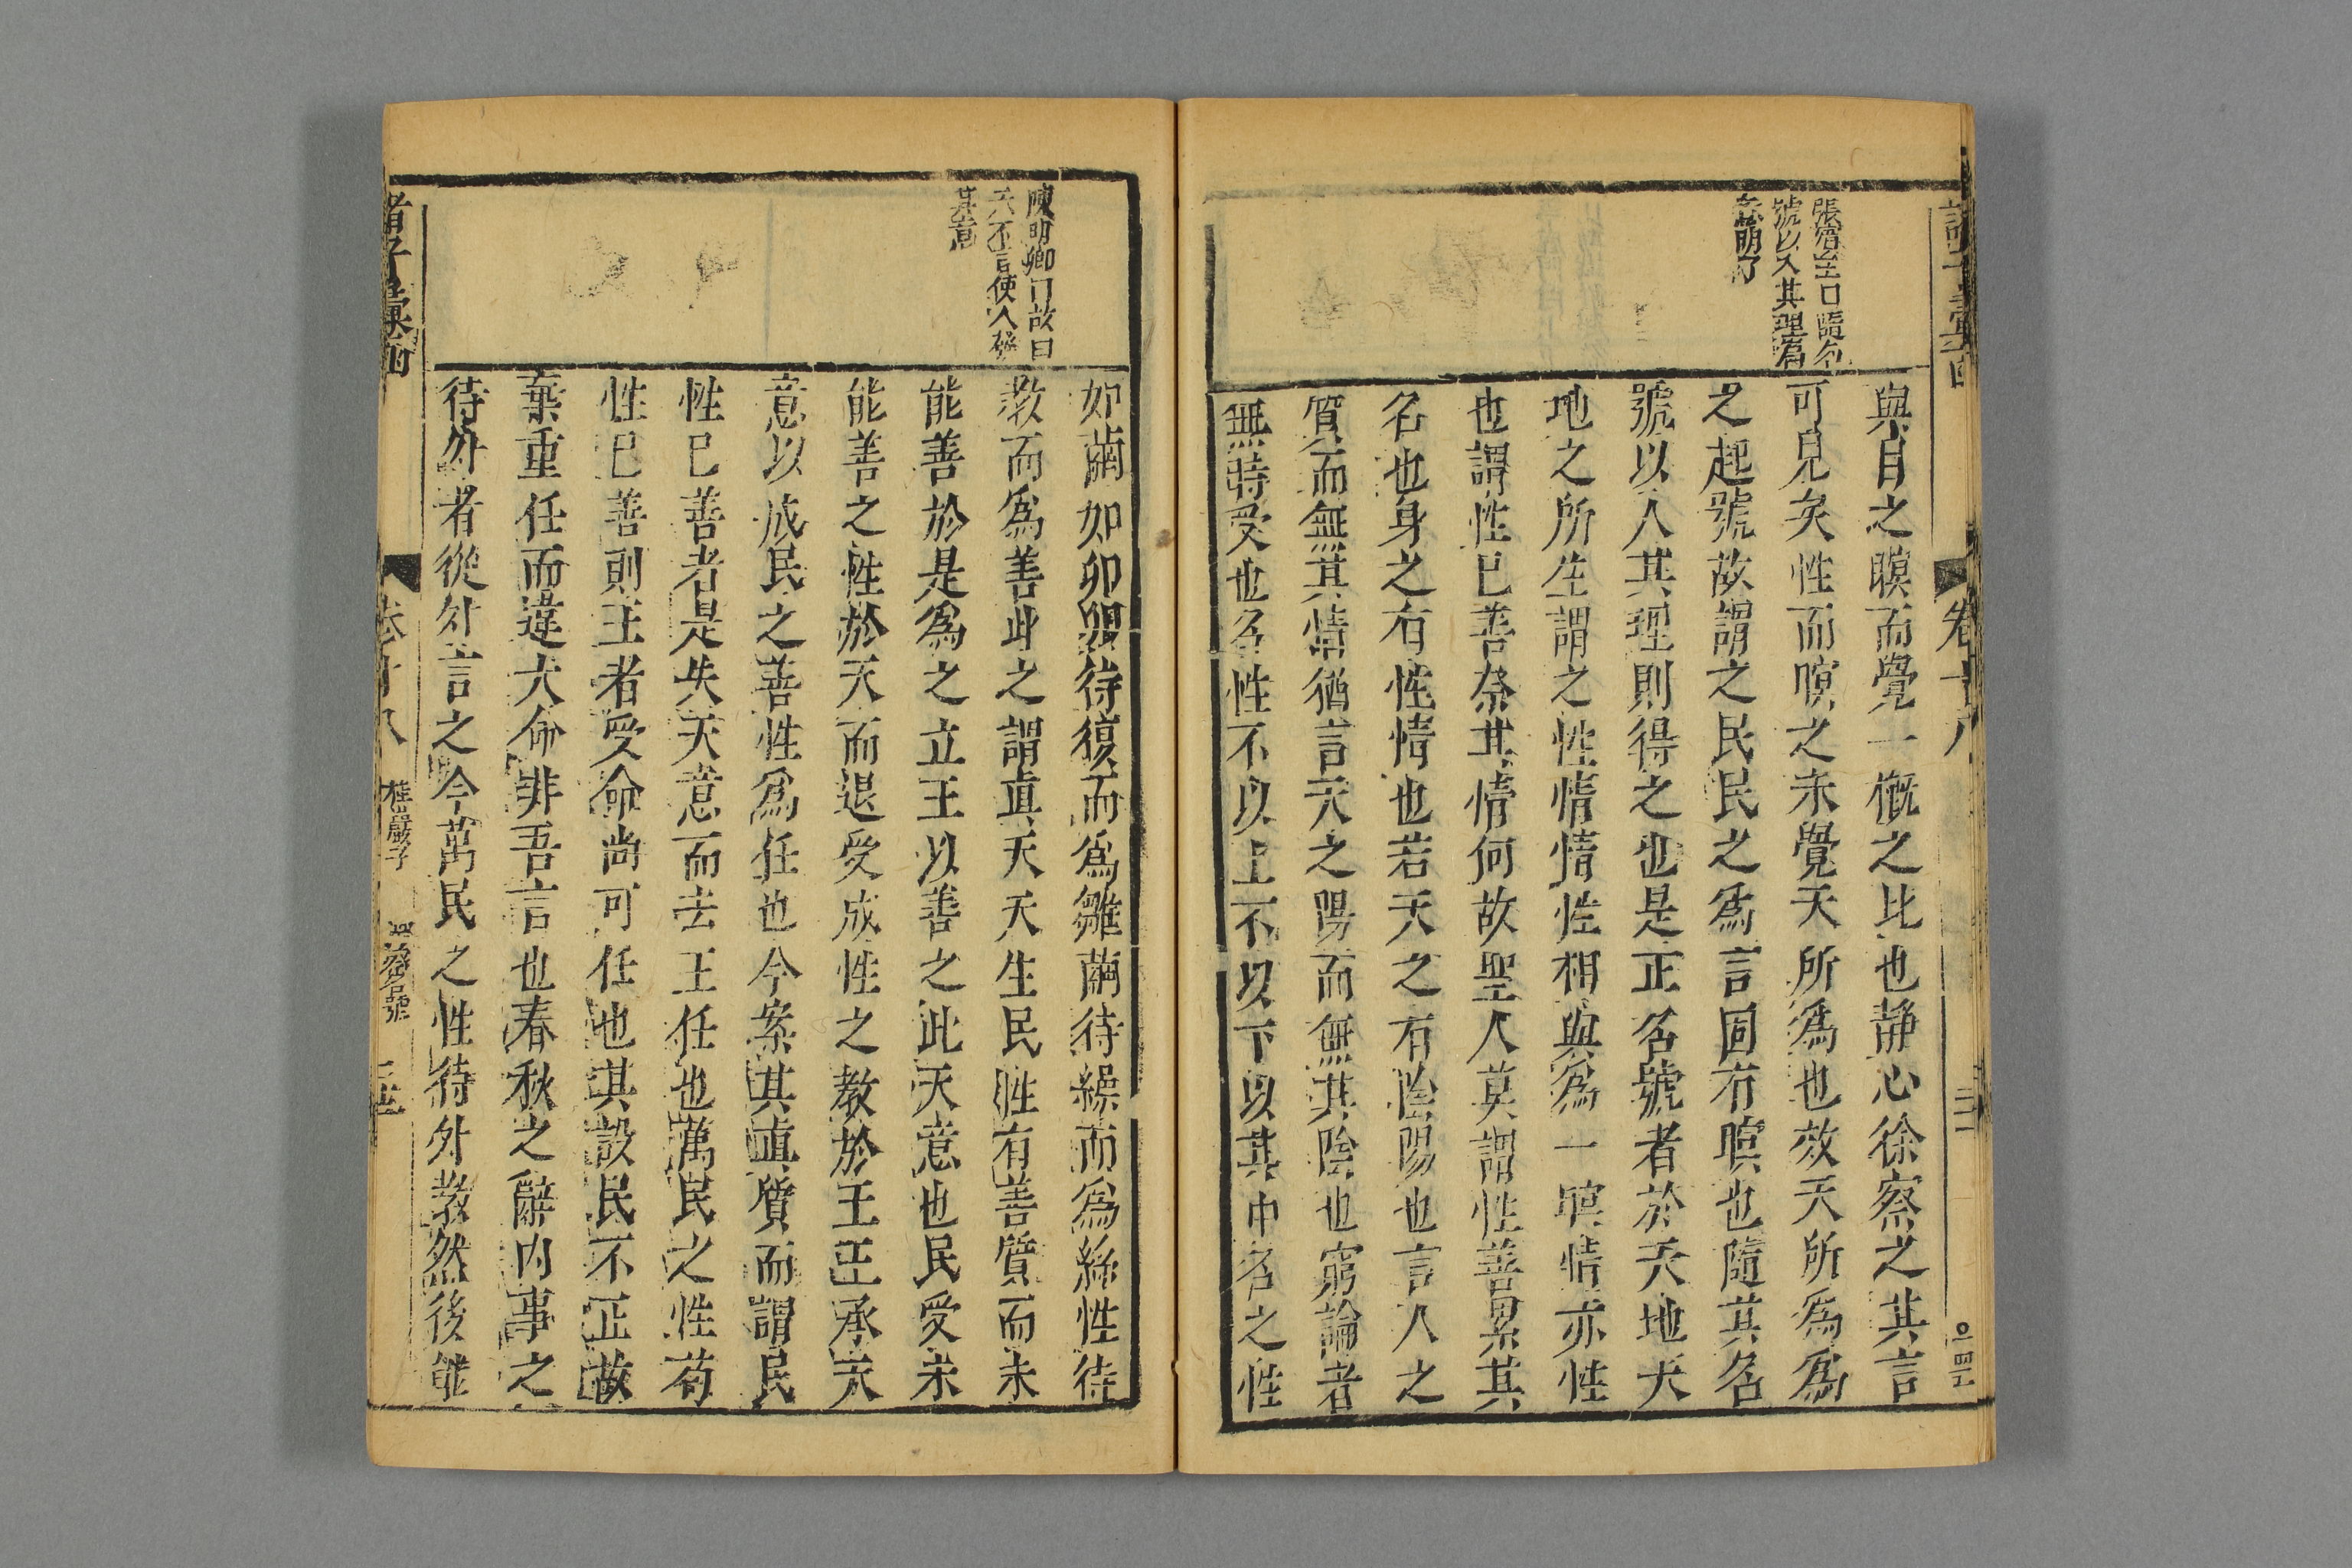 諸子彙函
卷十八
張賓王曰隨名
號以入其理爲
與目之瞑而覺一槪之比也靜心徐察之其言
可見矣性而瞑之未覺天所爲也效天所爲爲
之起號故謂之民民之爲言固有瞑也隨其名
號以入其理則得之也是正名號者於天地天
地之所生謂之性情情性相與爲一瞑情亦性
也謂性已善奈其情何故聖人莫謂性善累其
名也身之有性情也若天之有陰陽也言人之
質而無其情猶言天之陽而無其陰也窮論者
無時受也名性不以上不以下以其中名之性
陳明卿曰故曰
天不言使人發
其意
如繭如卵卵待復而爲雛繭待繰而爲絲性待
教而爲善此之謂眞天天生民性有善質而未
能善於是爲之立王以善之此天意也民受未
能善之性於天而退受成性之教於王王承天
意以成民之善性爲任也今案其眞質而謂民
性已善者是失天意而去王任也萬民之性苟
性已善則王者受命尚可任也其設民不正故
棄重任而違大命非吾言也春秋之辭內事之
待外者從外言之今萬民之性待外教然後能
諸子彙函
卷十八
桂巖子
深察名號